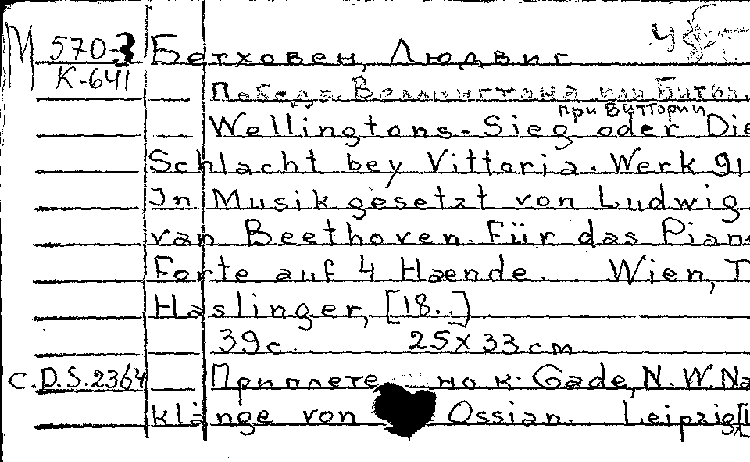 М 570-3 Бетховен, Людвиг
К-641
Победа Веллингтона или Битва
при Виттории
Wellingtons-Sieg oder Die
Schlacht bey Vittoria. Werk 91
In Musik gesetzt von Ludwig
van Beethoven. Für das Piano
Forte auf 4 Haende. Wien, T.
Haslinger, [18..]
39 с. 25x33 cm
C.D.S.2364 Приплете но к: Gade, N.W. Na
klänge von Ossian. Leipzig